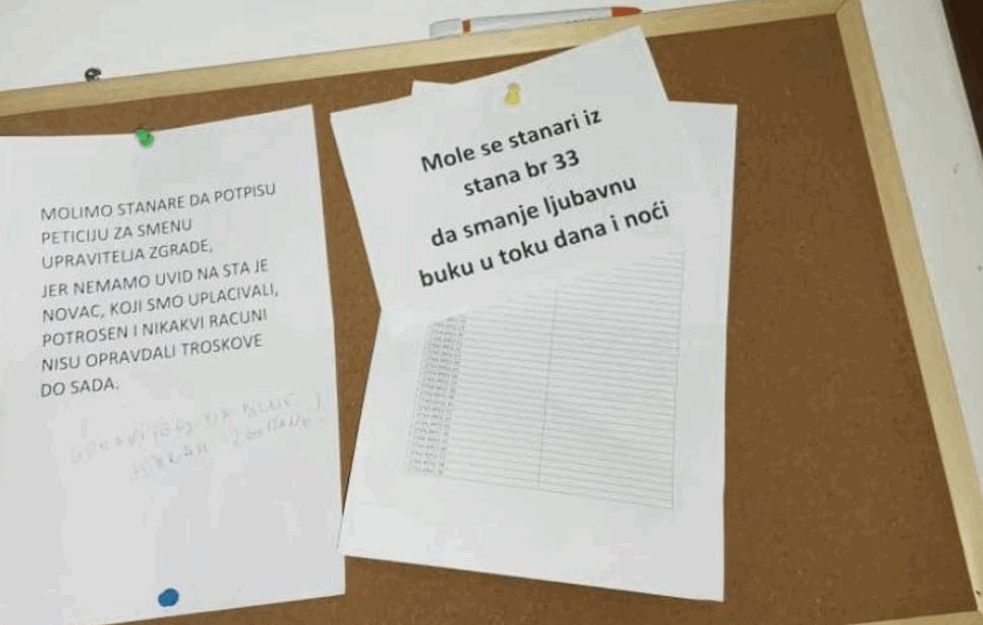 MOLIMO STANARE DA POTPISU
PETICIJU ZA SMENU
UPRAVITELJA ZGRADE,
JER NEMAMO UVID NA STA JE
NOVAC, KOJI SMO UPLACIVALI,
POTROSEN I NIKAKVI RACUNI
NISU OPRAVDALI TROSKOVE
DO SADA.
Mole se stanari iz
stana br 33
da smanje ljubavnu
buku u toku dana i noći